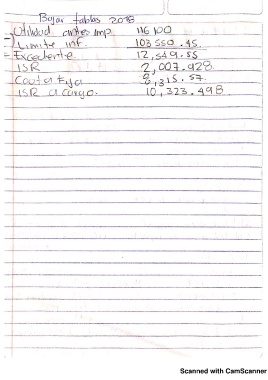 Bajar tablas 2018
Utilidad antes imp 116 100
-) Limite inf. 103 550.45
= Excedente 12,549.55
ISR 2,007.928
Cuota Fija 8,315.57
ISR a cargo. 10,323.498
Scanned with CamScanner